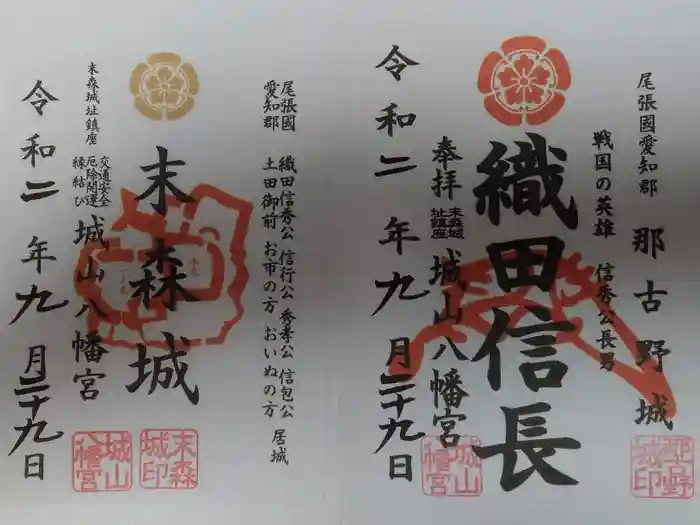 尾張國愛知郡 那古野城
戦国の英雄 信秀公長男
織田信長
奉拝
末森城
址鎮座
城山八幡宮
令和二年九月二十九日
那古野
城印
城山
八幡宮
尾張國
愛知郡
織田信秀公 信行公 秀孝公 信包公
土田御前 お市の方 おいぬの方
居城
末森城
末森城址鎮座
交通安全
厄除開運
縁結び
城山八幡宮
令和二年九月二十九日
末森
城印
城山
八幡宮